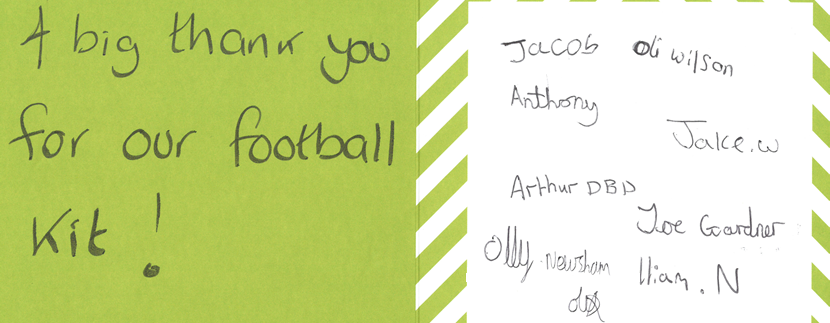 A big thank you
for our football
Kit!
Jacob
oli wilson
Anthony
Jake.w
Arthur DBD
Joe Gardner
Olly.Newsham
lliam.N